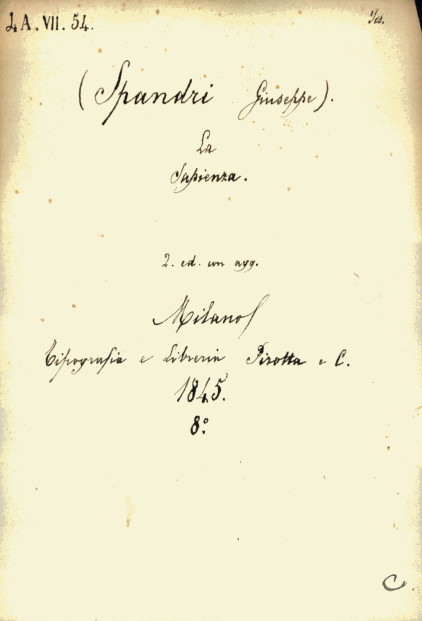 LA.VII.54.
(Spandri Giuseppe).
La
Sapienza.
2. ed. con agg.
Milano
Tipografia e Libreria Pirotta e C.
1845.
8°.
C.